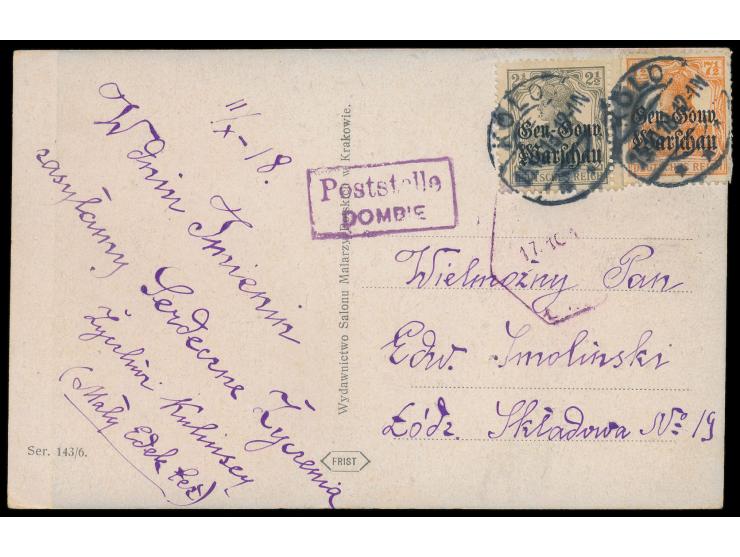 11/X - 18.
W dniu Imienin
zasyłamy Serdeczne Życzenia
Życzliwi Kulinscy
(Mały Edek też)
Ser. 143/6.
Poststelle
DOMBIE
Wydawnictwo Salonu Malarzy Polskich w Krakowie.
FRIST
2½ 2½
Gen.-Gouv.
Warschau
DEUTSCHES REICH
KOLO
7½
Gen.-Gouv.
Warschau
KOLO
17.10.1
Wielmożny Pan
Edw. Smolinski
Łódź. Składowa No 19